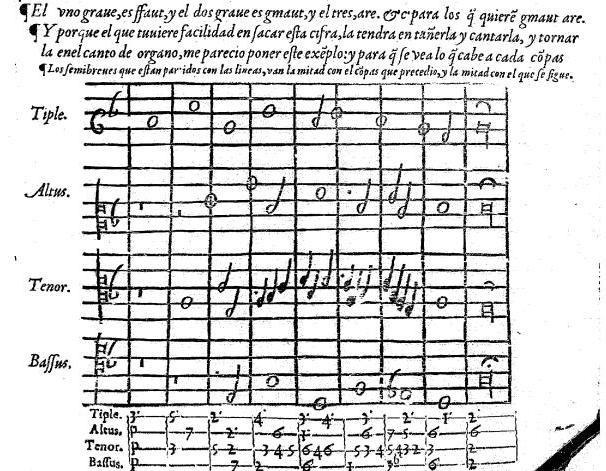 ¶El vno graue, es ffaut, y el dos graue es gmaut, y el tres, are. &c. para los q̃ quierẽ gmaut are.
¶ Y porque el que tuuiere facilidad en sacar esta cifra, la tendra en tañerla y cantarla, y tornar
la en el canto de organo, me parecio poner este exẽplo: y para q̃ se vea lo q̃ cabe a cada cõpas
¶Los semibreues que estan partidos con las lineas, van la mitad con el cõpas que precedio, y la mitad con el que se sigue.
Tiple.
Altus.
Tenor.
Bassus.
Tiple. 3' 5' 2' 4' 3' 4' 3' 2' 1' 2'
Altus. p 7 2' 6 1' 6 7 5 6 6
Tenor. p 3 5 2 3 4 5 6 4 6 5 3 4 5 4 3 2 3 2
Bassus. p 7 2 6 1 3b 2